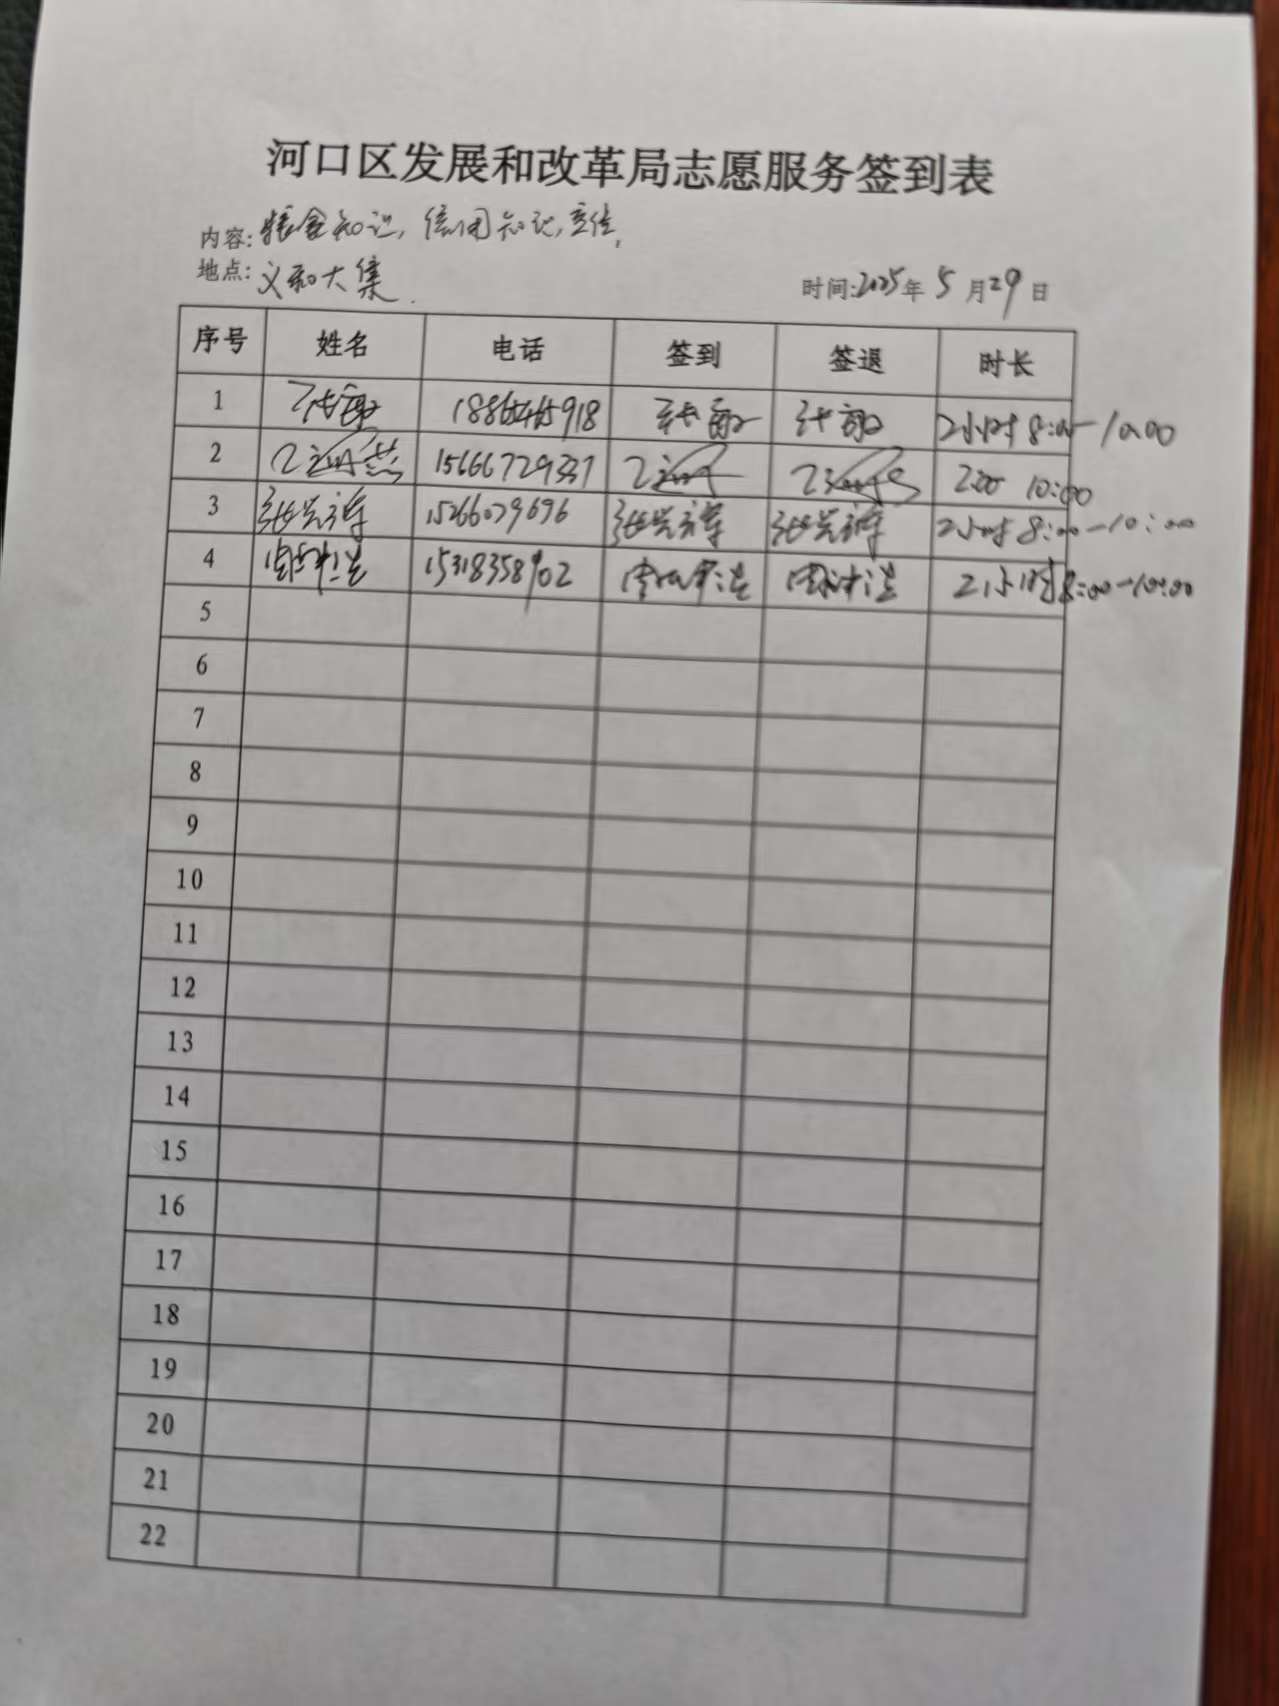 河口区发展和改革局志愿服务签到表
内容:粮食知识,信用知识,宣传,
地点:义和大集.
时间:2025年5月29日
序号 姓名 电话 签到 签退 时长
1 张敏 张敏 张敏 2小时 8:00-10:00
2 15666729337 10:00
3 张兴祥 15266079696 张兴祥 张兴祥 2小时 8:00-10:00
4 15318358902 2小时 8:00-10:00
5
6
7
8
9
10
11
12
13
14
15
16
17
18
19
20
21
22